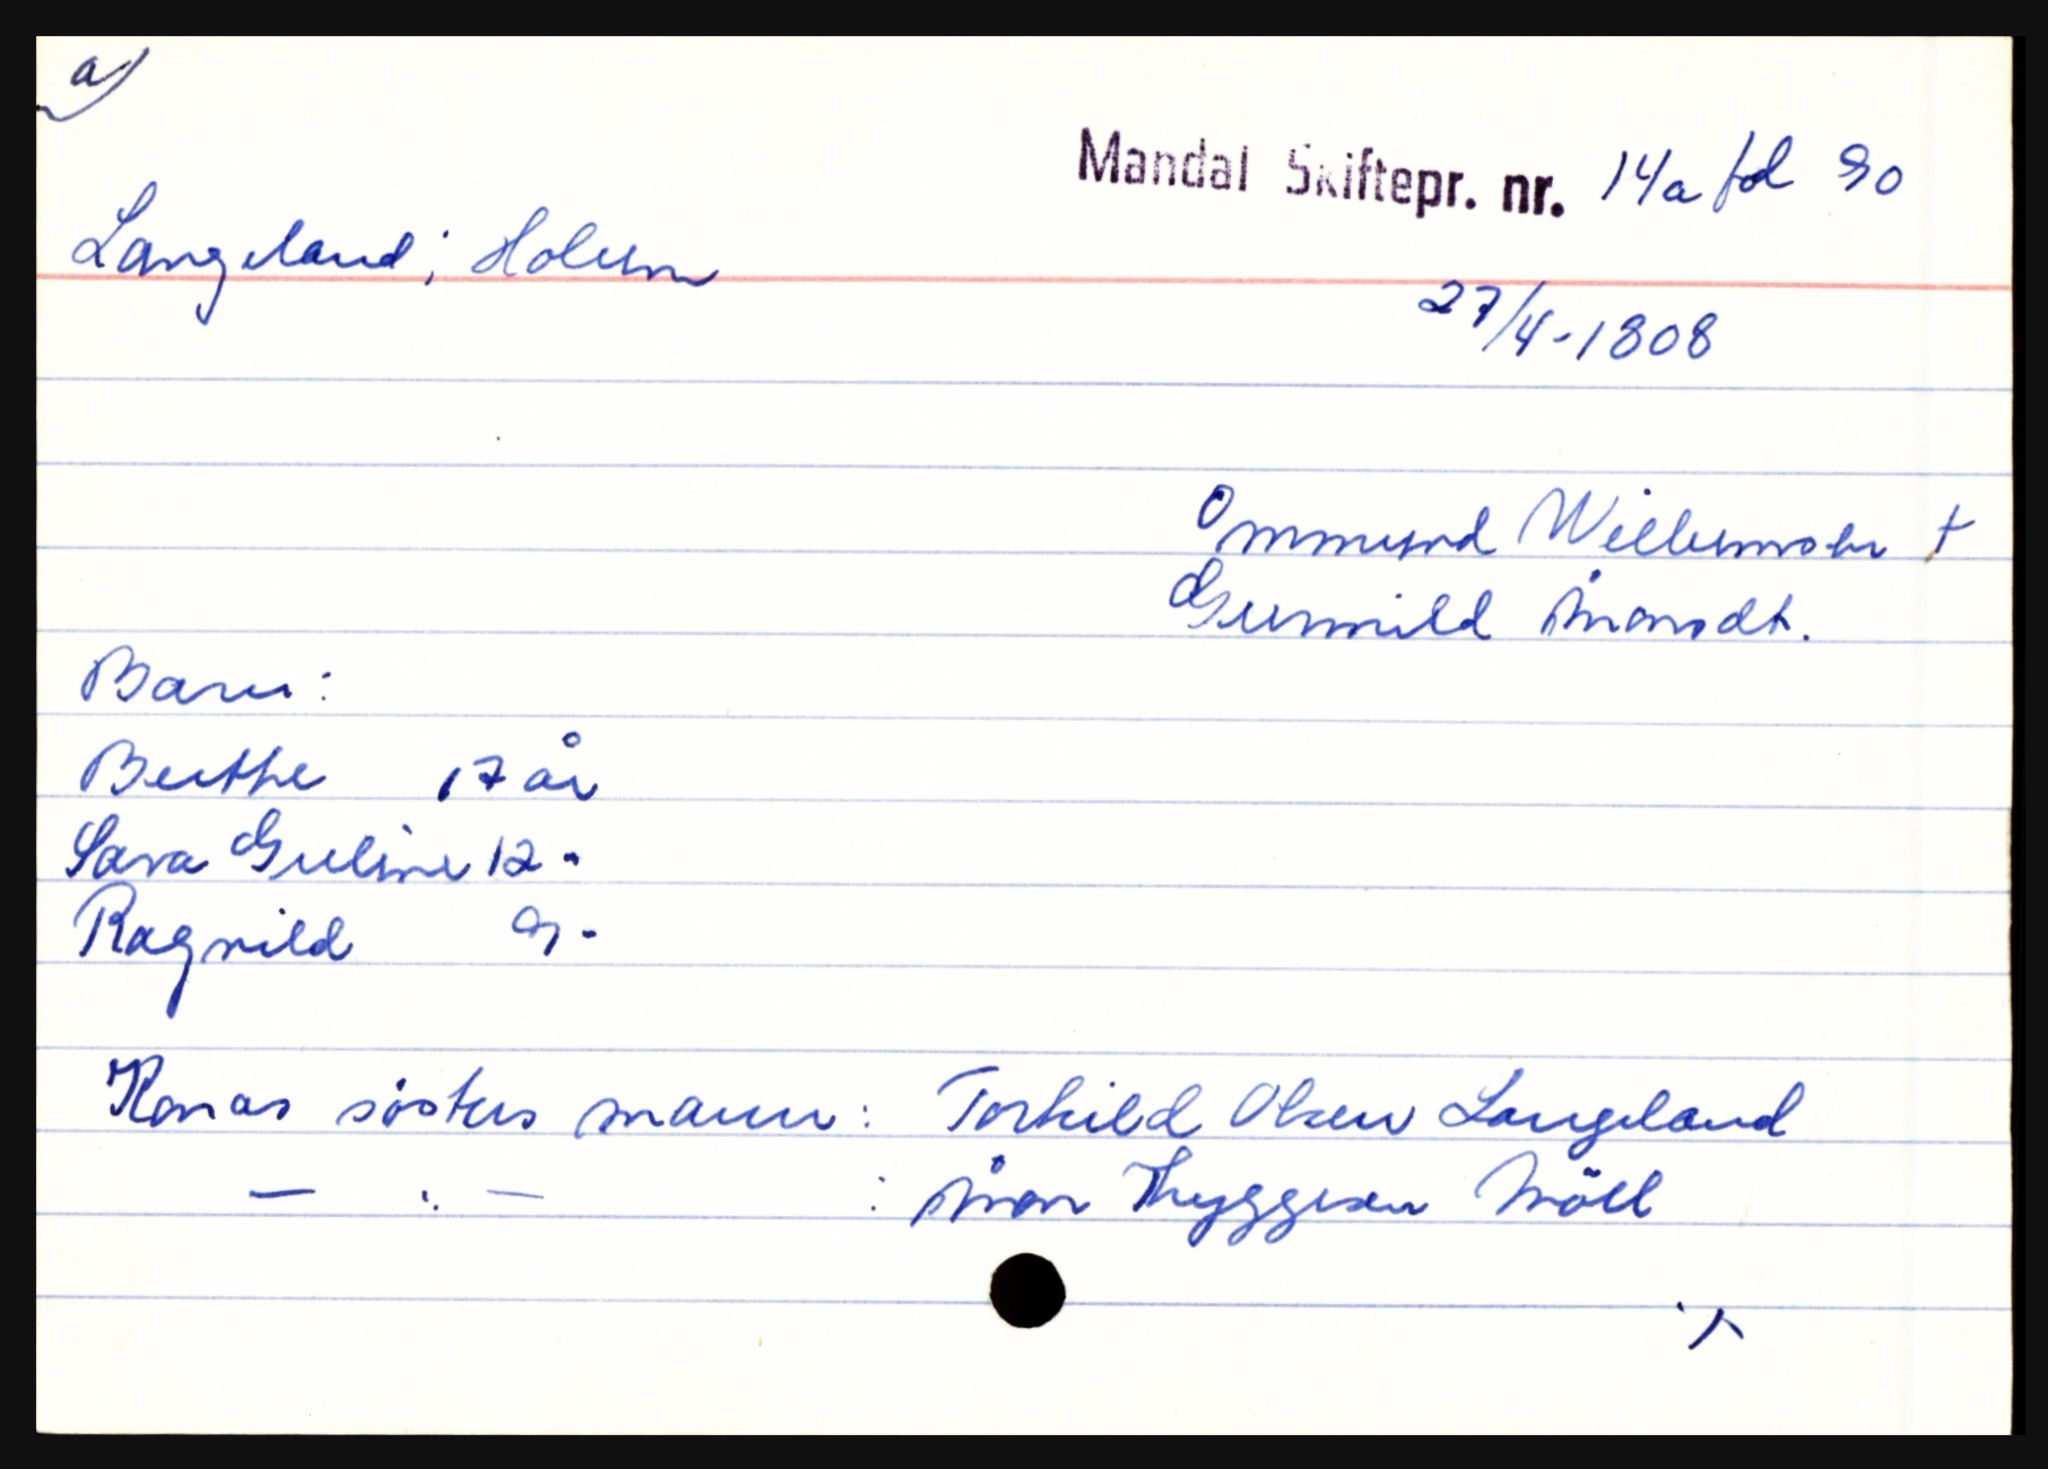 a)
Mandal Skiftepr. nr. 14a fol 90
Langeland i Holum
27/4-1808
Ommund Willumsen +
Gunnild Ånonsdt.
Barn:
Berthe 17 år
Sara Guline 12 -
Ragnild 9 -
Konas søsters mann: Torkild Olsen Langeland
— : — : Ånon Thyggesen Möll